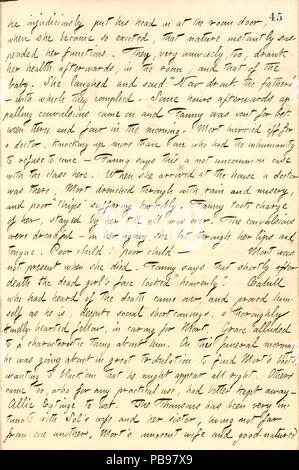 45
he injudiciously put his head in at the room door,
when she became so excited, that nature instantly sus-
pended her functions. They, very unwisely too, drank
her health afterwards, in the room, and that of the
baby. She laughed and said "Now drink the father's"
- with which they complied. Some hours afterwards ap-
palling convulsions came on and Fanny was sent for bet-
ween three and four in the morning. Mort hurried off for
a doctor, knocking up more than one who had the inhumanity
to refuse to come - Fanny says this a not uncommon case
with the class here. When she arrived at the house a doctor
was there, Mort drenched through with rain and misery,
and poor Ships suffering horribly. Fanny took charge
of her, stayed by her till all was over. The convulsions
were dreadful - in her agony she bit through her lips and
tongue. Poor child! poor child - Mort was
not present when she died. Fanny says that shortly after
death the dead girl's face looked heavenly. Cahill
who had heard of the death came over and proved him-
self as he is, despite social shortcomings, a thoroughly
kindly hearted fellow, in caring for Mort. Grace alluded
to a characteristic thing about him. On the funeral morning
he was going about in great tribulation to find Mort's boots,
wanting to black em that he might appear all right. Others
came too, who for any practical use, had better kept away -
Allie Eytinge to wit. The Thomsons has been very in-
timate with Sol's wife and her sister, living not far
from one another. Mort's innocent wife and good-natured
alamy
Image ID: PB97X9
www.alamy.com